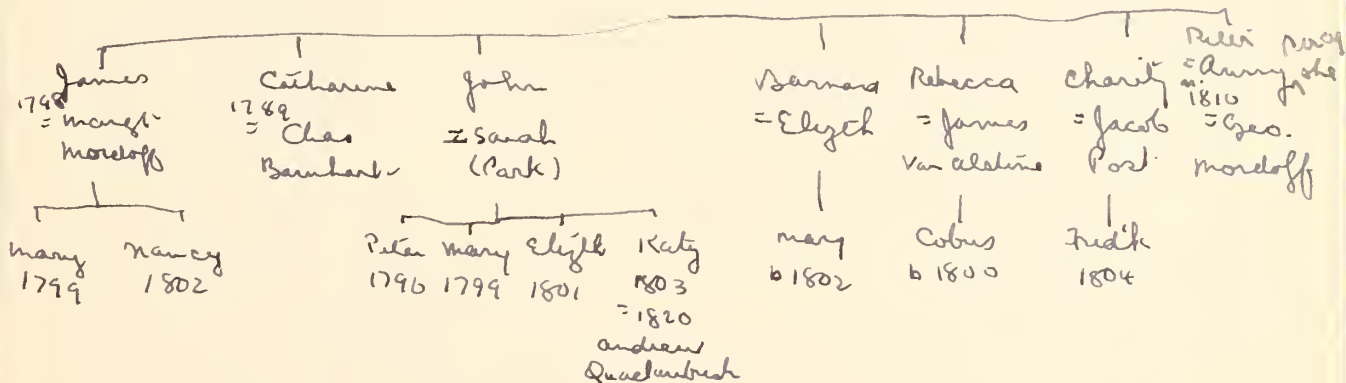 James
1798
= Margt
Mordoff
Catharine
1789
= Chas
Barnhart
John
= Sarah
(Park)
Barnard
= Elizth
Rebecca
= James
Van Alstine
Charity
= Jacob
Post
Peter
= Anny she
m.
1810
= Geo.
Mordoff
Mary
1799
Nancy
1802
Peter
1796
Mary
1799
Elizth
1801
Katy
1803
= 1820
Andrew
Quackenbush
Mary
b 1802
Cobus
b 1800
Fred'k
1804